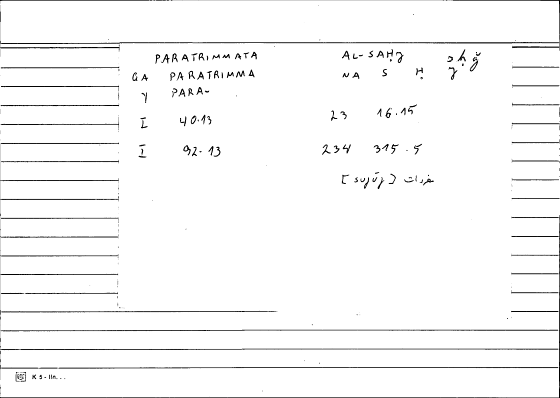 PARATRIMMATA AL-SAḤǦ sḥǧ
GA PARATRIMMA NA S Ḥ Ǧ
γ PARA-
I 40.13 23 16.15
I 92.13 234 315.5
[suǧūǧ]
K 5 - lln...